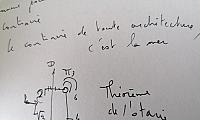 contraire
le contraire de toute architecture,
c'est la mer
D
Théorème
de l'otarie